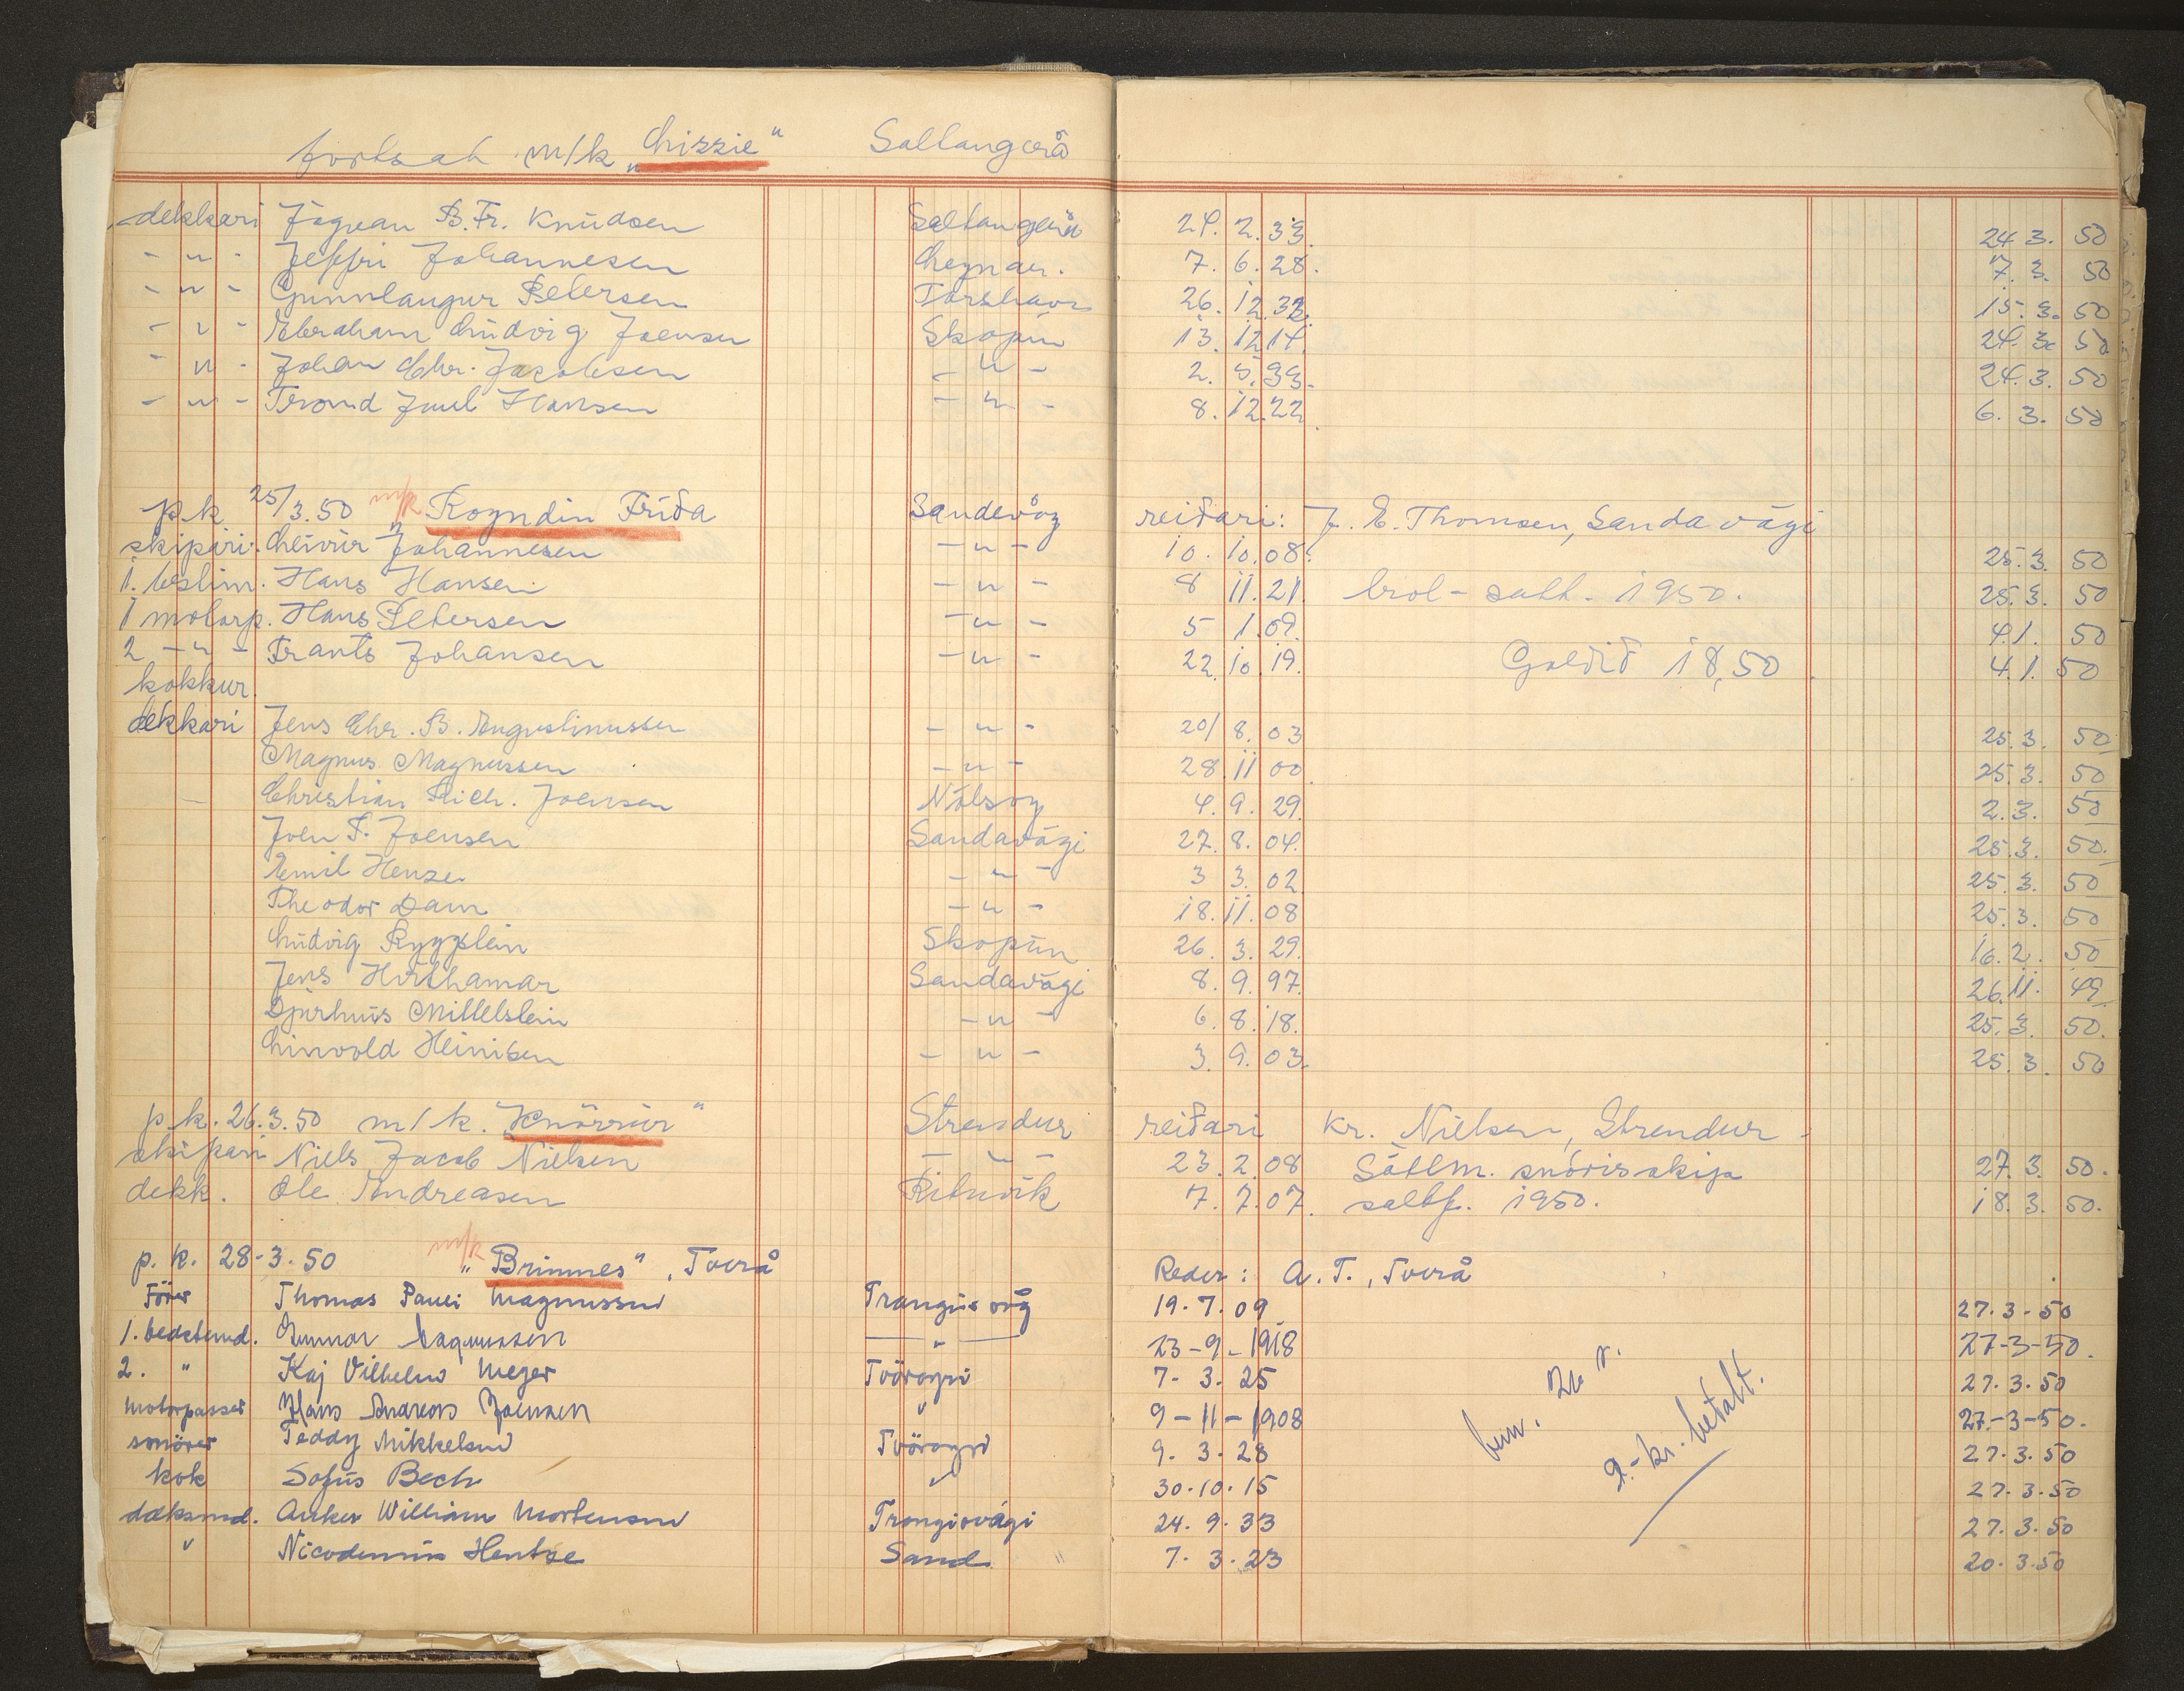 fortsat m/k "Lizzie" Saltangerå
dekkari Jógvan B. Fr. Knudsen Saltangerå 24. 2. 33. 24 3. 50
- " - Jeffri Johannesen Leynar. 7. 6. 28. 7. 3. 50
- " - Gunnlaugur Petersen Torshavn 26. 12. 32. 15. 3. 50
- " - Abraham Ludvig Joensen Skopun 13. 12 14. 24. 3. 50
- " - Johan Chr. Jacobsen - " - 2. 5. 33. 24. 3. 50
- " - Trond Juul Hansen - " - 8. 12. 22. 6. 3. 50
p.k. 25/3.50 m/k "Royndin Fríða Sandevåg reiðari: J. E. Thomsen, Sandavági
skipari: Leivur Johannesen - " - 10. 10. 08. 25. 3. 50
1. bestim. Hans Hansen - " - 8 11. 21. brol - salt. 1950. 25. 3. 50
1 motorp. Hans Petersen - " - 5 1. 09. 4.1. 50
2 - " - Frants Johansen - " - 22. 10. 19. Goldið 18,50 4. 1. 50
kokkur.
dekkari Jens Chr. B. Augustinussen - " - 20/ 8. 03 25. 3. 50
Magnus Magnussen - " - 28. 11 00. 25. 3. 50
Christian Rich. Joensen Nólsoy 4. 9. 29. 2. 3. 50
Joen F. Joensen Sandavági 27. 8. 04. 25. 3. 50.
Emil Henze - " - 3 3. 02. 25. 3. 50
Theodor Dam - " - 18. 11. 08 25. 3. 50
Ludvig Ryggstein Skopun 26. 3. 29. 16. 2. 50
Jens Hvithamar Sandavági 8. 9. 97. 26. 11. 49.
Djurhuus Mittelstein - " - 6. 8. 18. 25. 3. 50.
Linvold Heinisen - " - 3. 9. 03. 25. 3. 50
p.k. 26.3.50 m/k. "Knörrur" Strendur reiðari Kr. Nielsen, Strendur -
skipari Niels Jacob Nielsen - " - 23. 2. 08 Sáttm. snórisskip 27. 3. 50.
dekk. Ole Andreasen Rituvík 7. 7. 07. saltf. 1950. 18. 3. 50.
p. k. 28-3.50 m/k "Brimnes", Tverå Reder: A. T., Tverå
Förer Thomas Pauli Magnussen Trangisvåg 19. 7. 09 27. 3 - 50
1. bedstemd. Gunnar Magnussen - " - 23 - 9 - 1918 27-3-50.
2. " Kaj Vilhelm Mejer Tvöroyri 7. 3. 25 27. 3. 50
motorpasser Hans Andreas Joensen " 9 - 11 - 1908 27-3-50.
smörer Teddy Mikkelsen Tvöroyri 9. 3. 28 27. 3. 50
kok Sofus Bech " 30. 10. 15 27. 3. 50
dæksmd. Anker William Mortensen Trongisvági 24. 9. 33 27. 3. 50
" Nicodemus Hentze Sand 7. 3. 23 20. 3. 50
9.- kr. betalt.